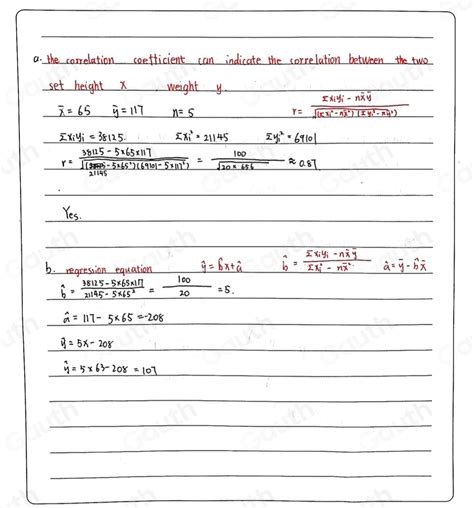 a. the correlation coefficient can indicate the correlation between the two
set height x weight y.
x̄ = 65 ȳ = 117 n = 5 r = (Σxᵢyᵢ - nx̄ȳ) / √((Σxᵢ² - nx̄²)(Σyᵢ² - nȳ²))
Σxᵢyᵢ = 38125 Σxᵢ² = 21145 Σyᵢ² = 69101
r = (38125 - 5×65×117) / √((21145 - 5×65²)(69101 - 5×117²)) = 100 / √(20 × 656) ≈ 0.87
Yes.
b. regression equation ŷ = b̂x + â b̂ = (Σxᵢyᵢ - nx̄ȳ) / (Σxᵢ² - nx̄²) â = ȳ - b̂x̄
b̂ = (38125 - 5×65×117) / (21145 - 5×65²) = 100 / 20 = 5.
â = 117 - 5×65 = -208
ŷ = 5x - 208
ŷ = 5×63 - 208 = 107